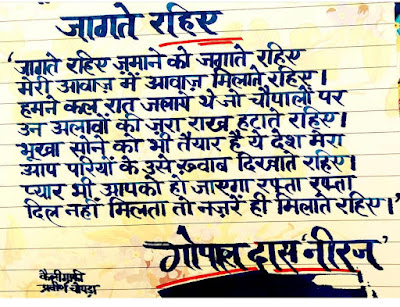 जागते रहिए
"जागते रहिए ज़माने को जगाते रहिए
मेरी आवाज़ में आवाज़ मिलाते रहिए।
हमने कल रात जलाये थे जो चौपालों पर
उन अलावों की ज़रा राख हटाते रहिए।
भूखा सोने को भी तैयार है ये देश मेरा
आप परियों के उसे ख़्वाब दिखाते रहिए।
प्यार भी आपको हो जाएगा रफ़्ता रफ़्ता
दिल नहीं मिलता तो नज़रें ही मिलाते रहिए।"
गोपाल दास 'नीरज'
कैलीग्राफी
प्रवीण चोपड़ा